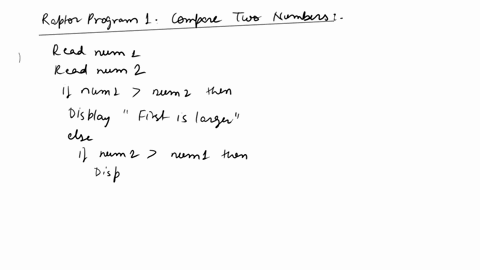 Raptor Program 1. Compare Two Numbers:.
) Read num 1
Read num 2
if num1 > num2 then
Display " First is larger"
else
if num2 > num1 then
Disp